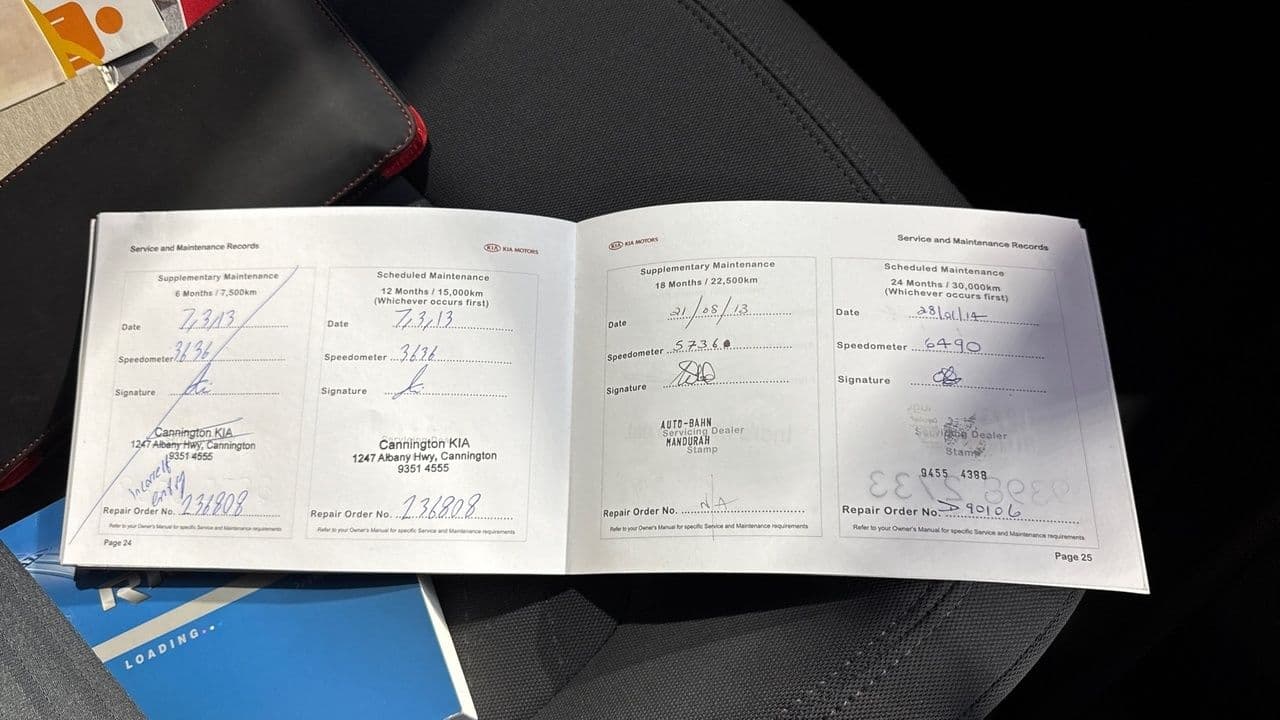 Service and Maintenance Records
KIA KIA MOTORS
Supplementary Maintenance
6 Months / 7,500km
Date 7/3/13
Speedometer 3636
Signature
Cannington KIA
1247 Albany Hwy, Cannington
9351 4555
Incorrect
entry
Repair Order No. 236808
Refer to your Owner's Manual for specific Service and Maintenance requirements
Page 24
Scheduled Maintenance
12 Months / 15,000km
(Whichever occurs first)
Date 7/3/13
Speedometer 3636
Signature
Cannington KIA
1247 Albany Hwy, Cannington
9351 4555
Repair Order No. 236808
Refer to your Owner's Manual for specific Service and Maintenance requirements
KIA KIA MOTORS
Service and Maintenance Records
Supplementary Maintenance
18 Months / 22,500km
Date 21/08/13
Speedometer 5736
Signature
AUTO-BAHN
Servicing Dealer
MANDURAH
Stamp
Repair Order No. N/A
Refer to your Owner's Manual for specific Service and Maintenance requirements
Scheduled Maintenance
24 Months / 30,000km
(Whichever occurs first)
Date 28/01/14
Speedometer 6490
Signature
Servicing Dealer
Stamp
9455 4388
Repair Order No. D90106
Refer to your Owner's Manual for specific Service and Maintenance requirements
Page 25
LOADING..